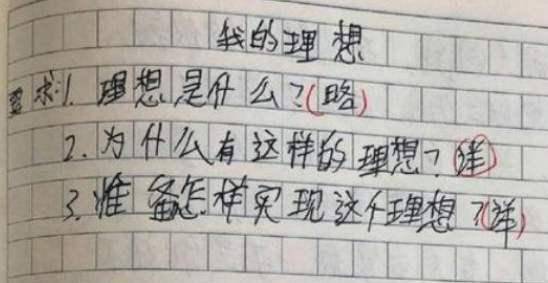 我的理想
要求:1.理想是什么?(略)
2.为什么有这样的理想?(详)
3.准备怎样实现这个理想?(详)